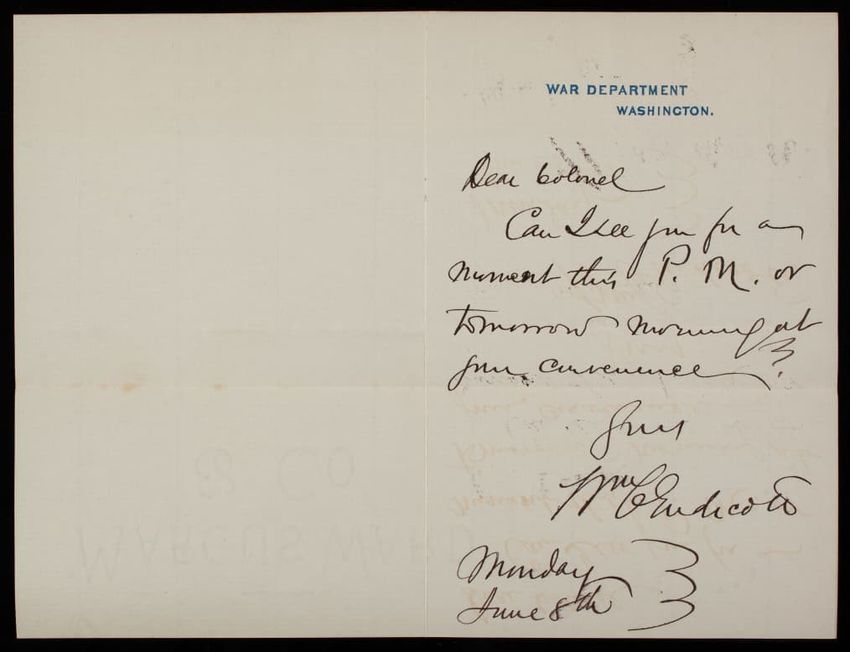 WAR DEPARTMENT
WASHINGTON.
Dear Colonel
Can I see you for a
moment this P. M. or
tomorrow morning at
your convenience?
Yours
Wm C Endicott
Monday
June 8th
& Co
MARCUS WARD